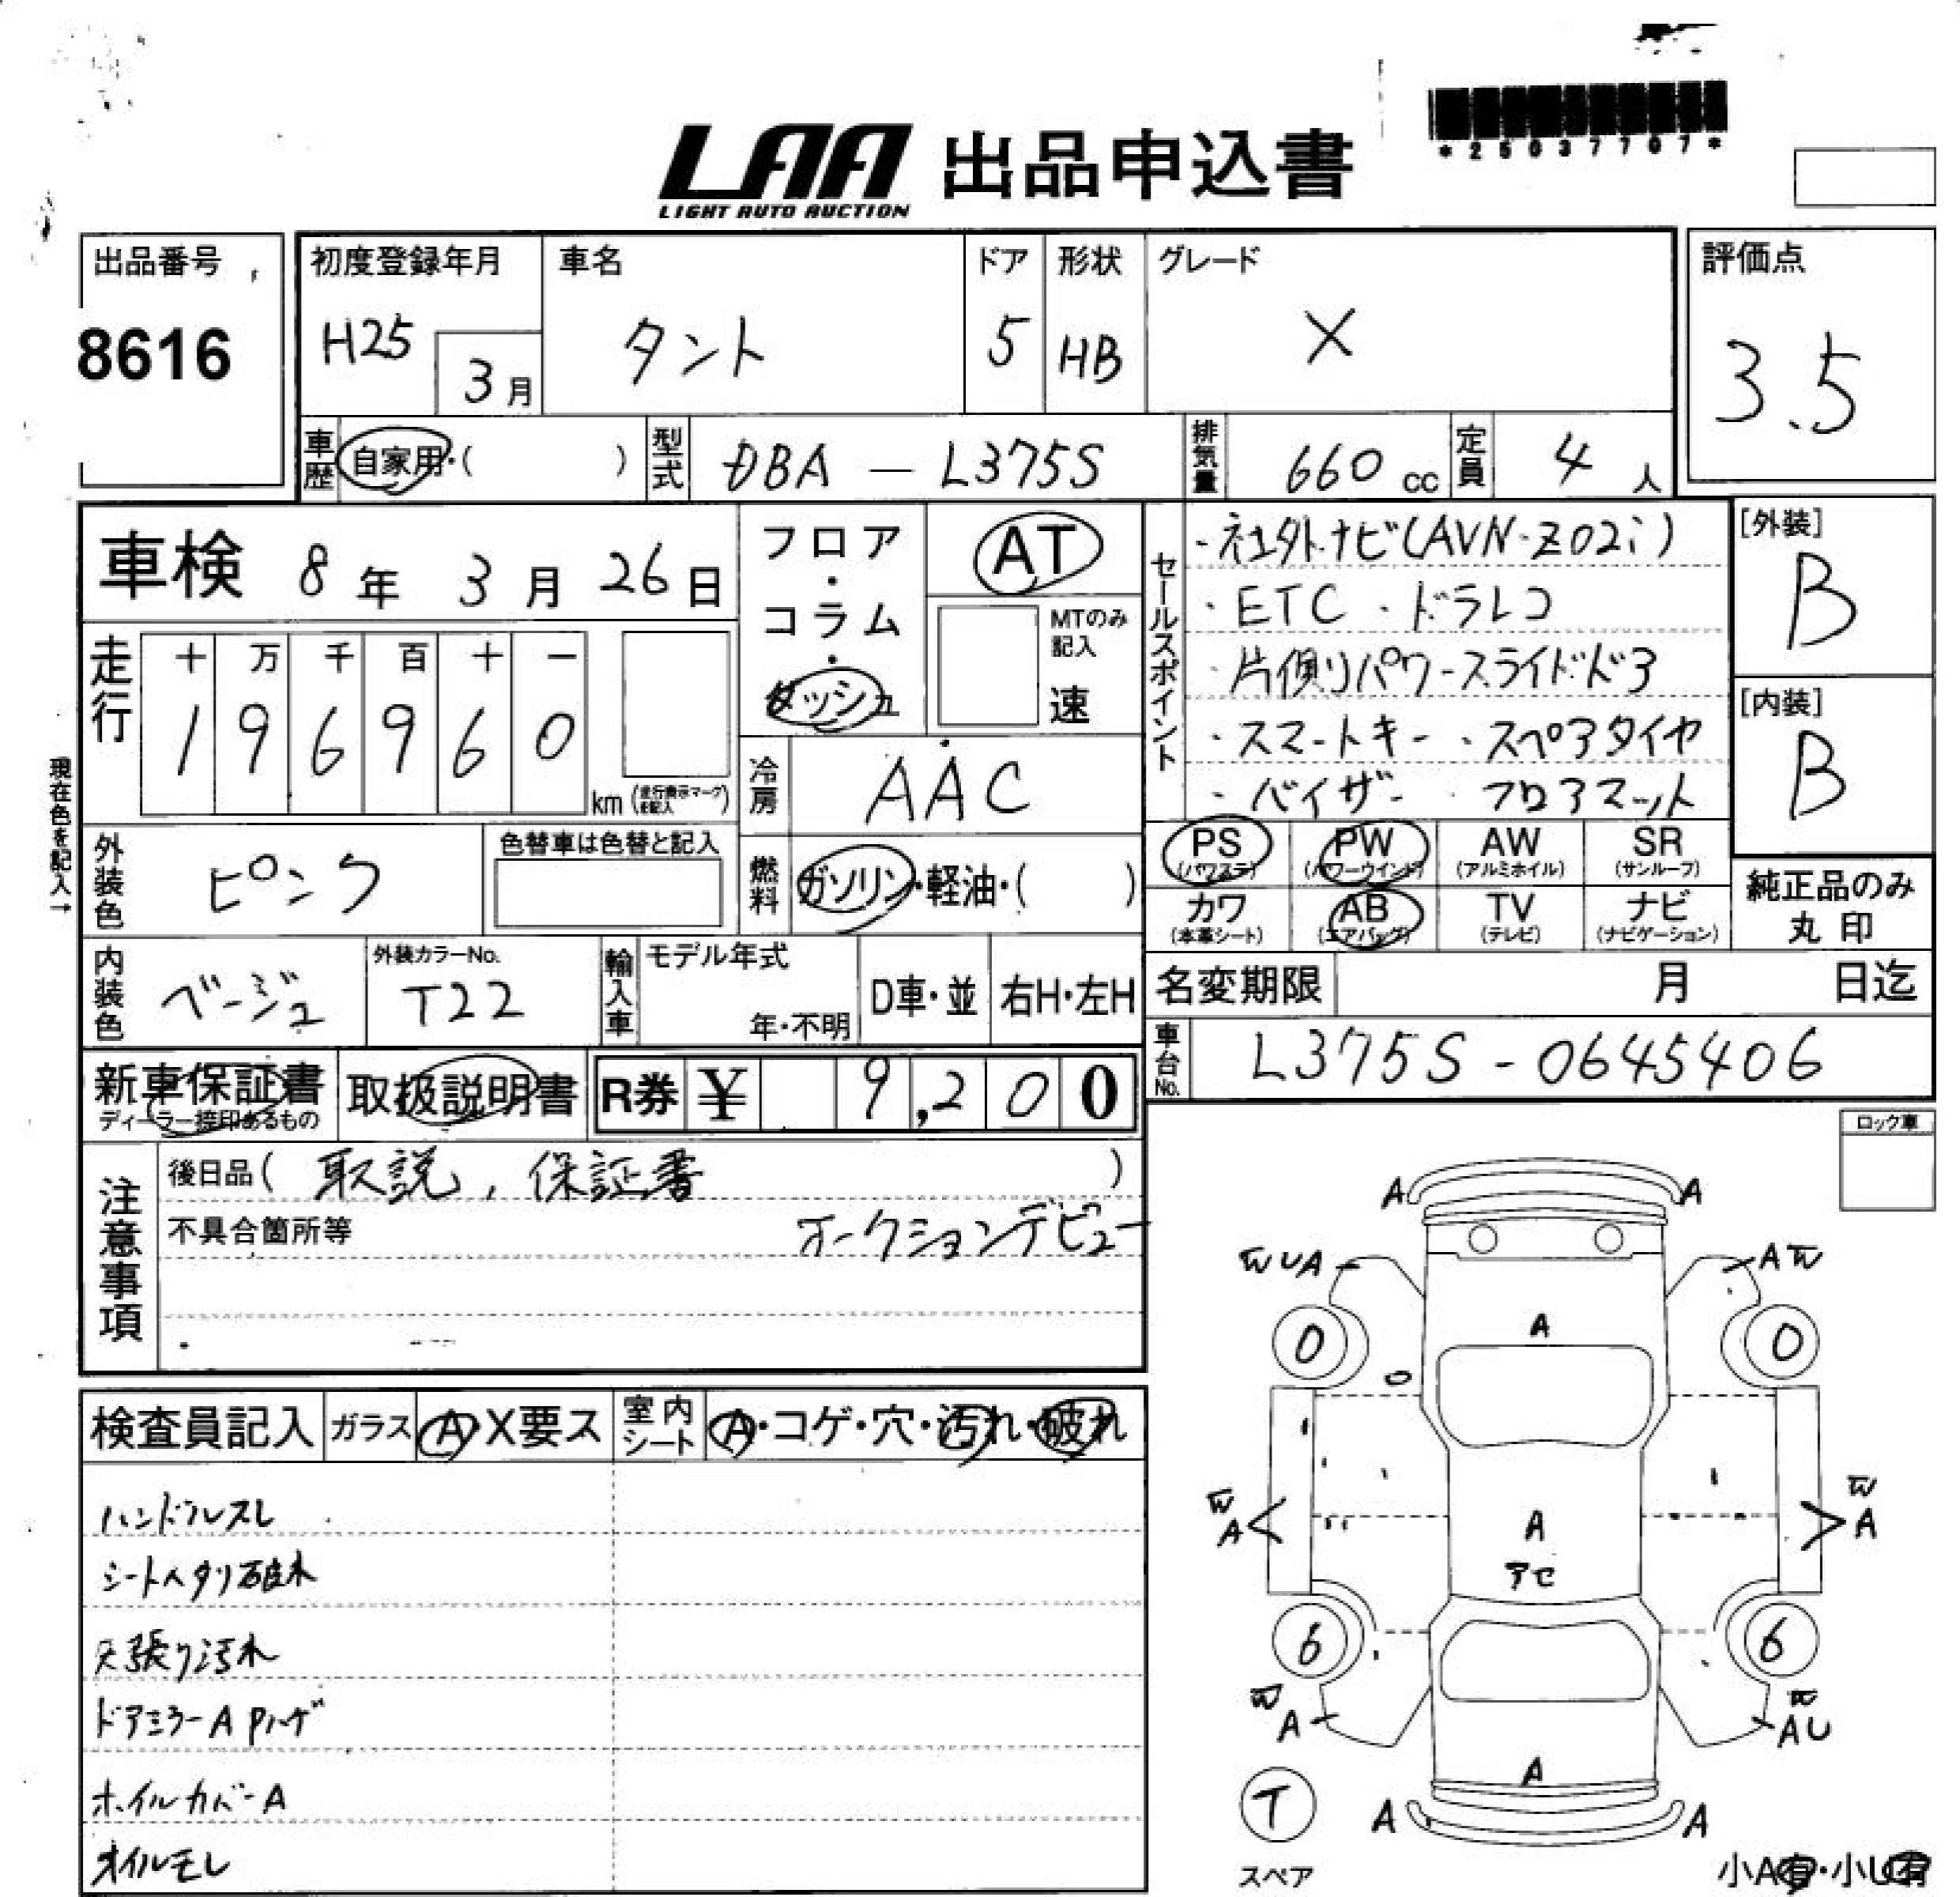 *25037707*
LAA 出品申込書
LIGHT AUTO AUCTION
出品番号
8616
初度登録年月
H25 3月
車名
タント
ドア
5
形状
HB
グレード
X
評価点
3.5
車歴 自家用・( )
型式 DBA — L375S
排気量 660 cc
定員 4 人
車検 8年 3月 26日
フロア・コラム・ダッシュ
AT
MTのみ記入
速
走行
十 万 千 百 十 一
1 9 6 9 6 0
km (走行表示マークを記入)
現在色を記入→
冷房 AAC
セールスポイント
・社外ナビ(AVN-Z02i)
・ETC ・ドラレコ
・片側パワースライドドア
・スマートキー ・スペアタイヤ
・バイザー ・フロアマット
[外装]
B
[内装]
B
外装色 ピンク
色替車は色替と記入
燃料 ガソリン・軽油・( )
PS (パワステ)
PW (パワーウインド)
AW (アルミホイル)
SR (サンルーフ)
カワ (本革シート)
AB (エアバッグ)
TV (テレビ)
ナビ (ナビゲーション)
純正品のみ
丸 印
内装色 ベージュ
外装カラーNo.
T22
輸入車
モデル年式
年・不明
D車・並
右H・左H
名変期限 月 日迄
車台No. L375S-0645406
新車保証書
ディーラー捺印あるもの
取扱説明書
R券 ¥ 9,200
注意事項
後日品( 取説, 保証書 )
不具合箇所等
オークションデビュー
ロック車
検査員記入
ガラス A・X要ス
室内シート A・コゲ・穴・汚れ・破れ
ハンドルスレ
シートヘタリ破れ
天張り汚れ
ドアミラーA Pハゲ
ホイルカバーA
オイルモレ
A A
W U A A W
A
0 0
W A A W A
アセ
6 6
W A W A U
A
A A
T
スペア
小A有・小U有